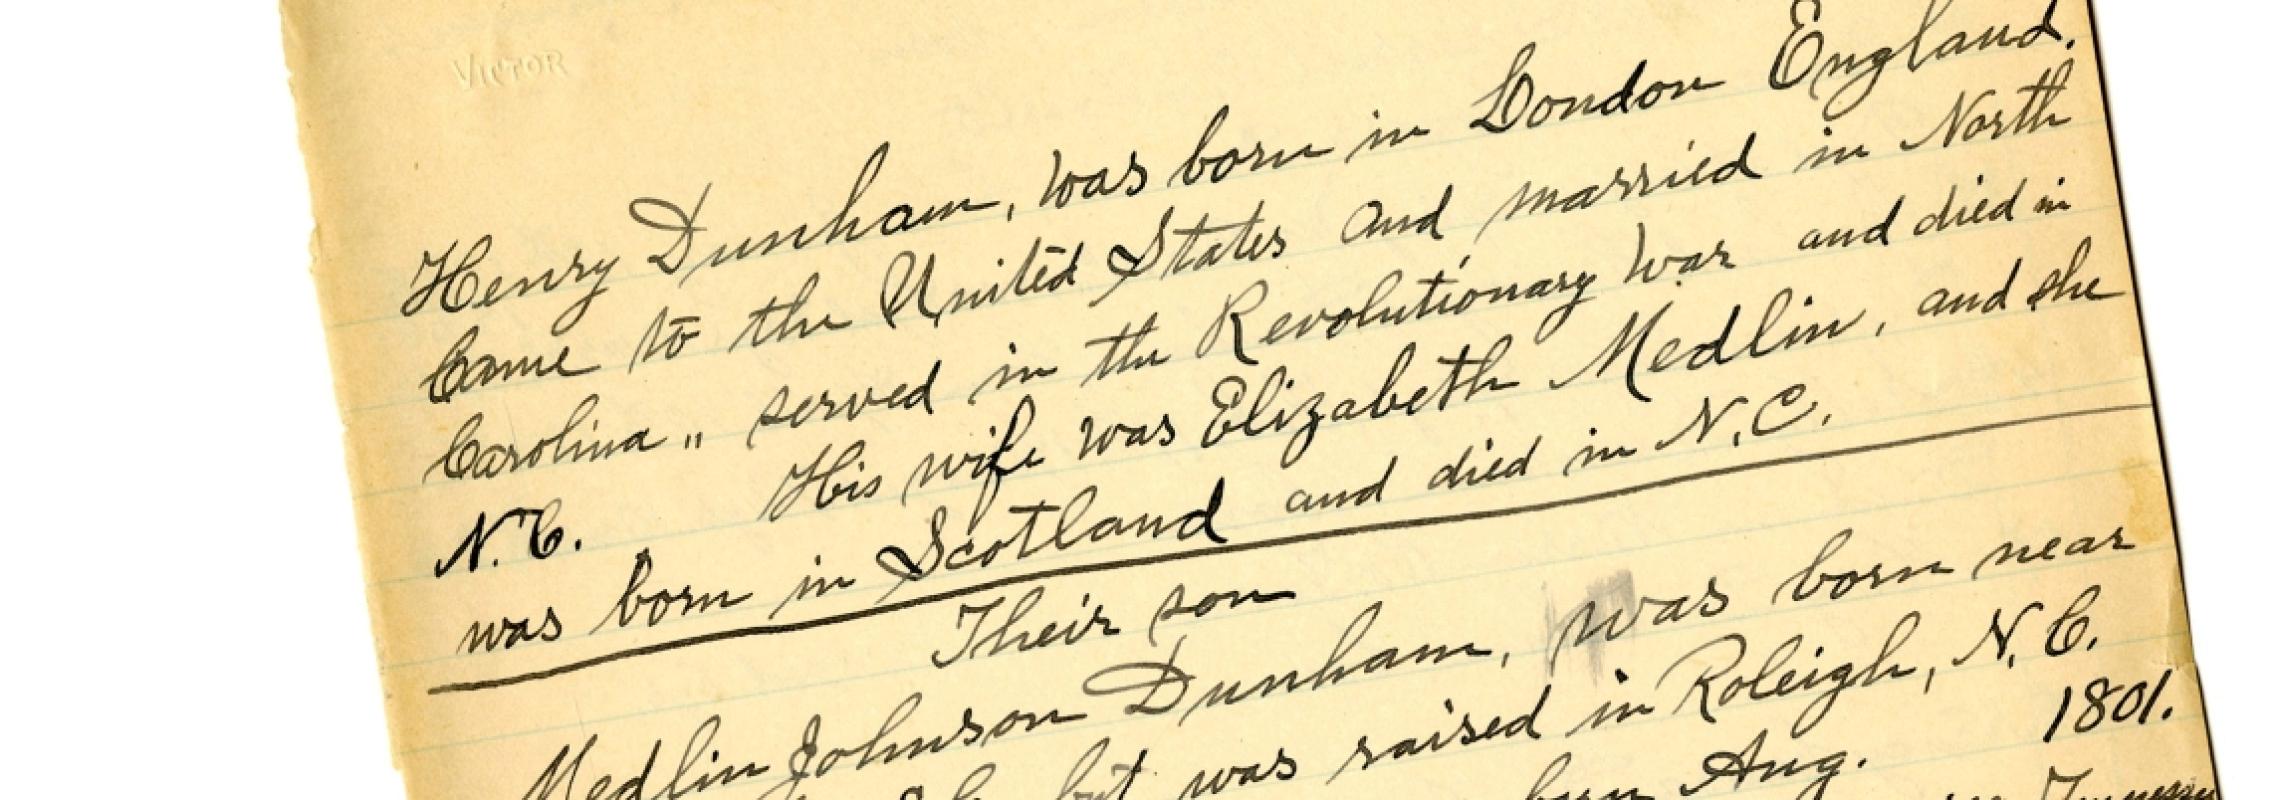 VICTOR
Henry Dunham, was born in London England.
Came to the United States and married in North
Carolina ,, served in the Revolutionary War and died in
N.C. His wife was Elizabeth Medlin, and she
was born in Scotland and died in N.C.
Their son
Medlin Johnson Dunham, was born near
but was raised in Roleigh, N.C.
born Aug. 1801.